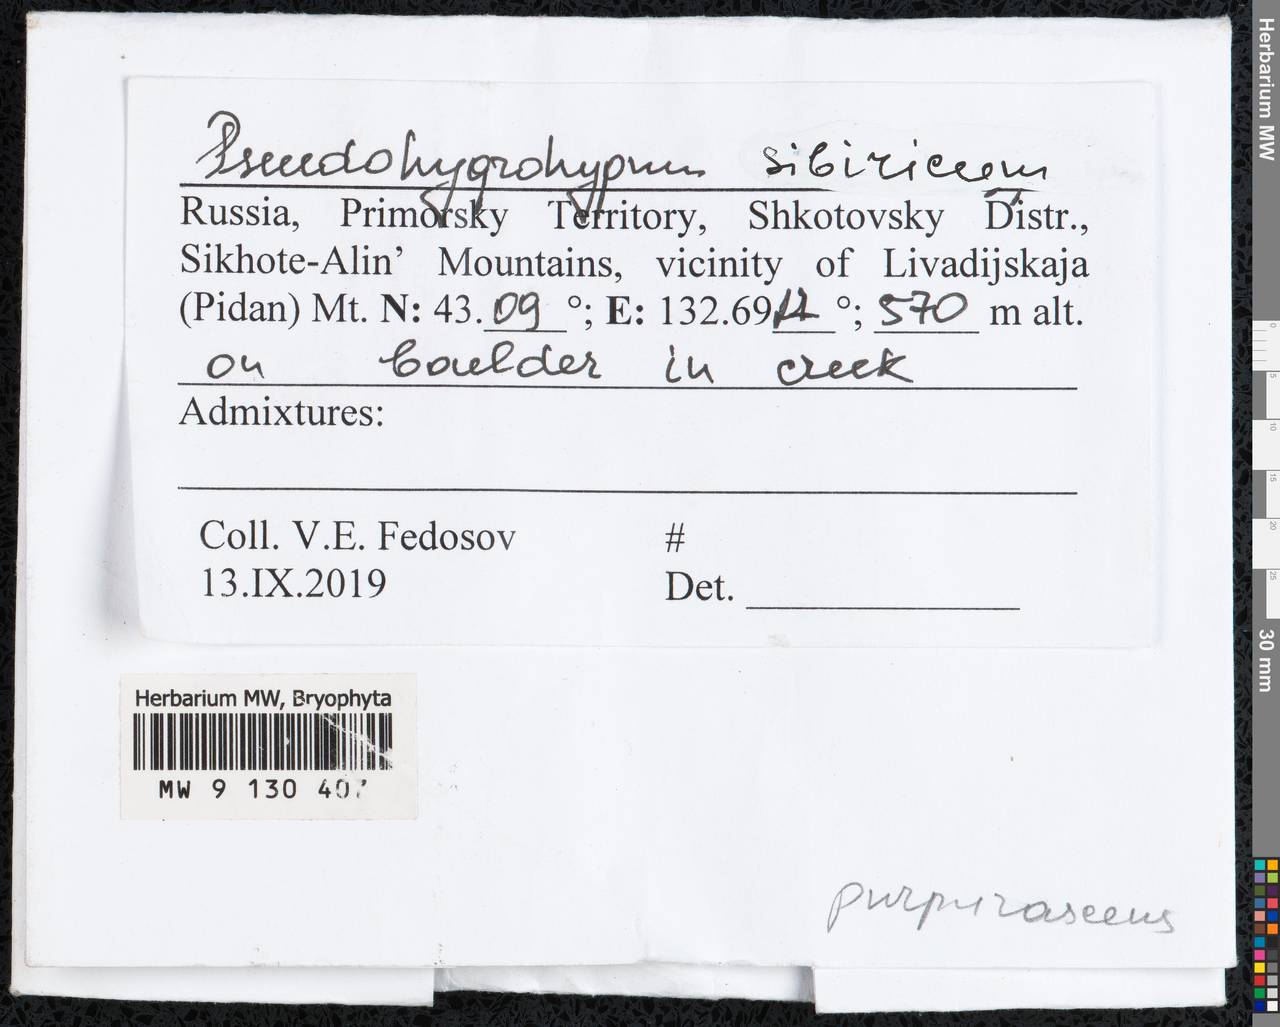 Pseudohygrohypnum sibiricum
Russia, Primorsky Territory, Shkotovsky Distr.,
Sikhote-Alin’ Mountains, vicinity of Livadijskaja
(Pidan) Mt. N: 43.09 °; E: 132.69 °; 570 m alt.
on boulder in creek
Admixtures:
Coll. V.E. Fedosov #
13.IX.2019 Det.
Herbarium MW, Bryophyta
MW 9 130 407
purpurascens
Herbarium MW
0 5 10 15 20 25
30 mm